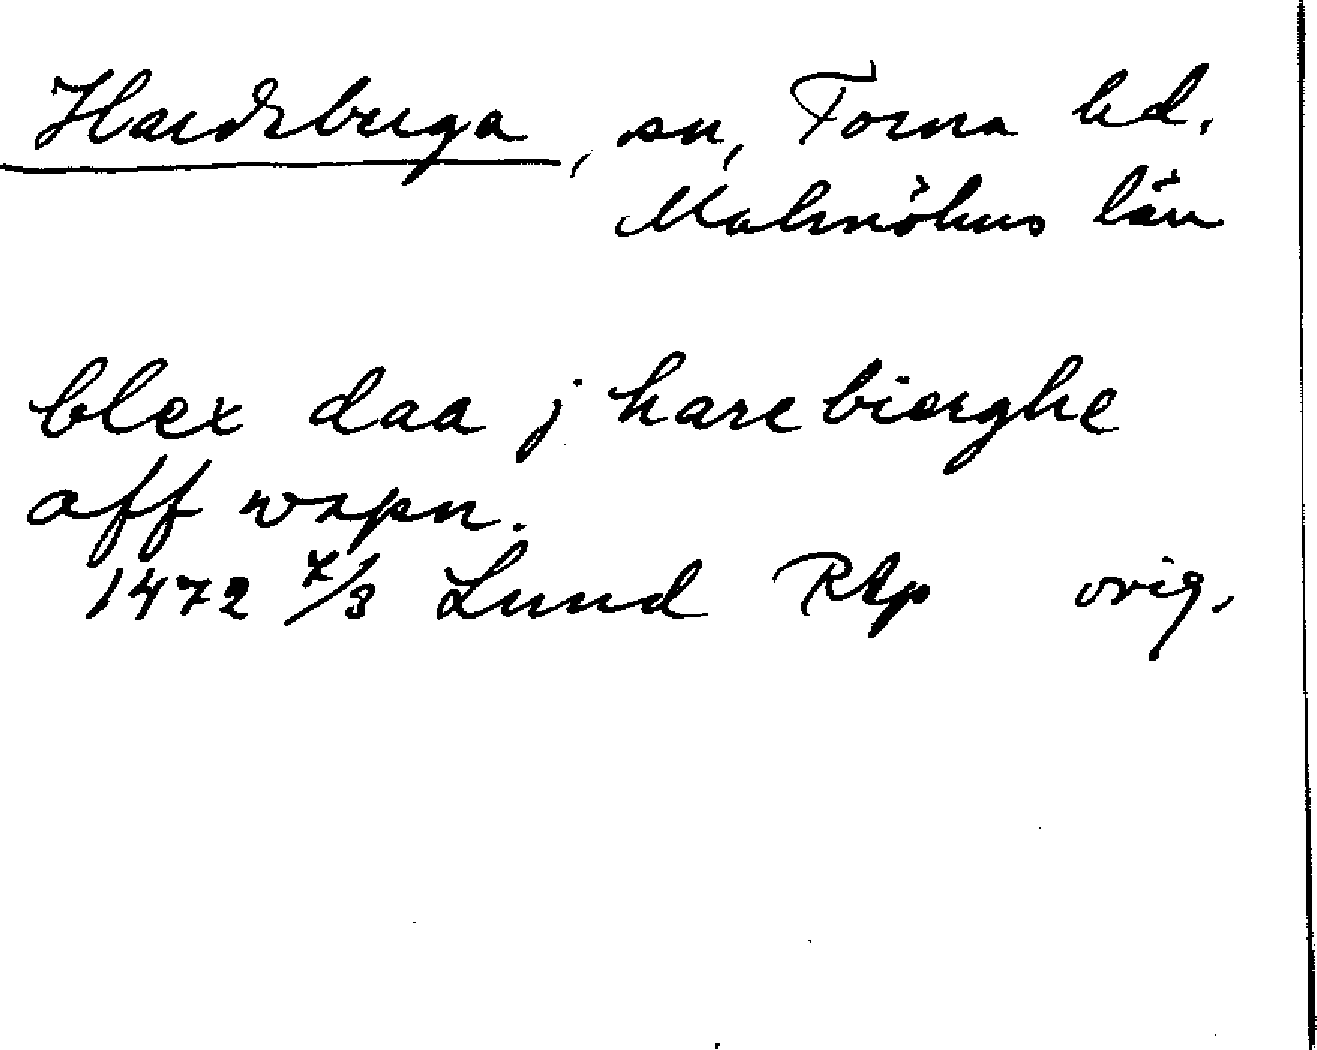 Hardeberga, sn, Torna hd.
Malmöhus län
blex daa j harebierghe
aff wapn.
1472 7/3 Lund Rep orig.